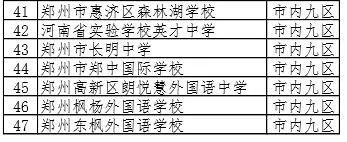 41 郑州市惠济区森林湖学校 市内九区
42 河南省实验学校英才中学 市内九区
43 郑州市长明中学 市内九区
44 郑州市郑中国际学校 市内九区
45 郑州高新区朗悦慧外国语中学 市内九区
46 郑州枫杨外国语学校 市内九区
47 郑州东枫外国语学校 市内九区